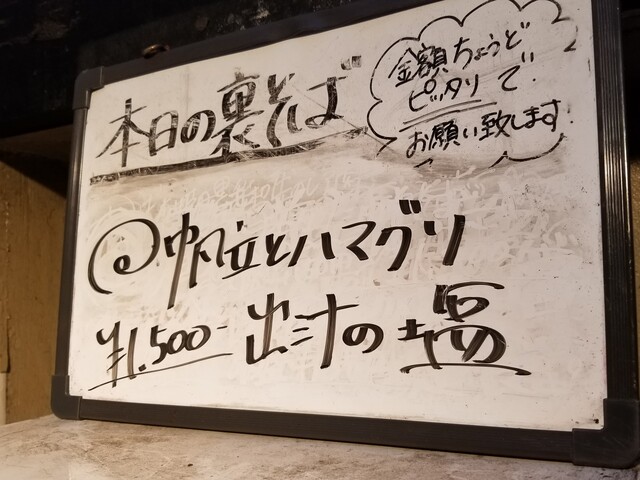 本日の裏そば
金額ちょうど
ピッタリで
お願い致します.
帆立とハマグリ
¥1.500- 出汁の塩